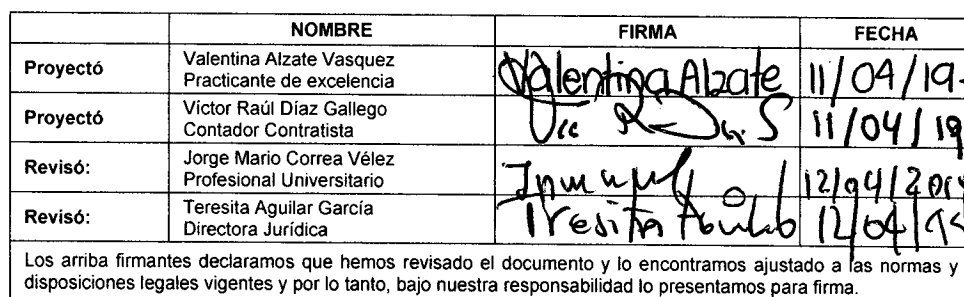 NOMBRE FIRMA FECHA
Proyectó Valentina Alzate Vasquez
Practicante de excelencia Valentina Alzate 11/04/19
Proyectó Víctor Raúl Díaz Gallego
Contador Contratista 11/04/19
Revisó: Jorge Mario Correa Vélez
Profesional Universitario 12/04/2019
Revisó: Teresita Aguilar García
Directora Jurídica Teresita 12/04/19
Los arriba firmantes declaramos que hemos revisado el documento y lo encontramos ajustado a las normas y
disposiciones legales vigentes y por lo tanto, bajo nuestra responsabilidad lo presentamos para firma.